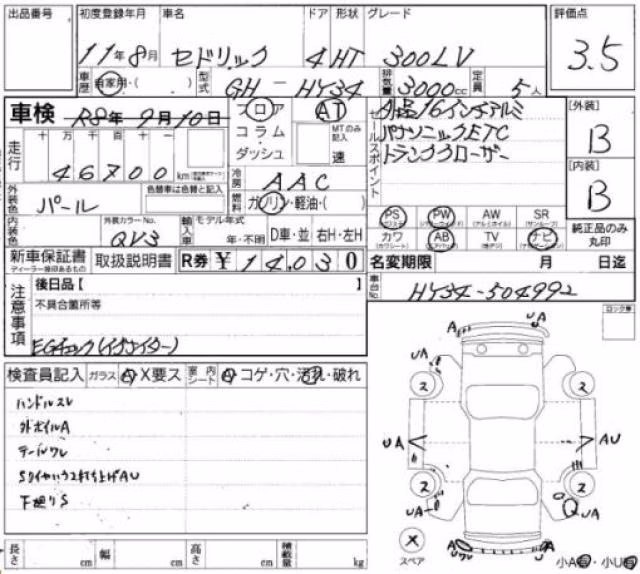 出品番号
初度登録年月
車名
ドア 形状 グレード
評価点
11年8月 セドリック 4 HT 300LV
3.5
車歴 自家用・( ) 型式 GH-HY34 排気量 3000cc 定員 5人
車検 R8年9月10日
フロア
コラム・
ダッシュ
AT
MTのみ記入
速
セールスポイント
純正16インチアルミ
パナソニックETC
トランククローザー
[外装]
B
[内装]
B
走行 十 万 千 百 十 一
46700 km
冷房 AAC
燃料 ガソリン・軽油・( )
外装色 パール
色替車は色替と記入
内装色
外装カラーNo.
QV3
輸入車 モデル年式
年・不明 D車・並 右H・左H
PS PW AW SR
(パワステ) (パワーウィンドウ) (アルミホイル) (サンルーフ)
カワ AB TV ナビ
(カワシート) (エアバッグ) (地デジ) (ナビゲーション)
純正品のみ
丸印
新車保証書
ディーラー捺印あるもの
取扱説明書 R券 ¥14,030
名変期限 月 日迄
車台No. HY34-504992
注意事項
後日品【 】
不具合箇所等
EGチェック(イグナイター)
ロック車
検査員記入 ガラス A X要ス 室内シート コゲ・穴・汚れ・破れ
ハンドルスレ
外ホイルA
テールワレ
下廻りS
A U A
UA A
2 2
UA AU
2 2
UA UA
X
スペア
A Uワレ U
小A・小U
長さ cm 幅 cm 高さ cm 積載量 kg